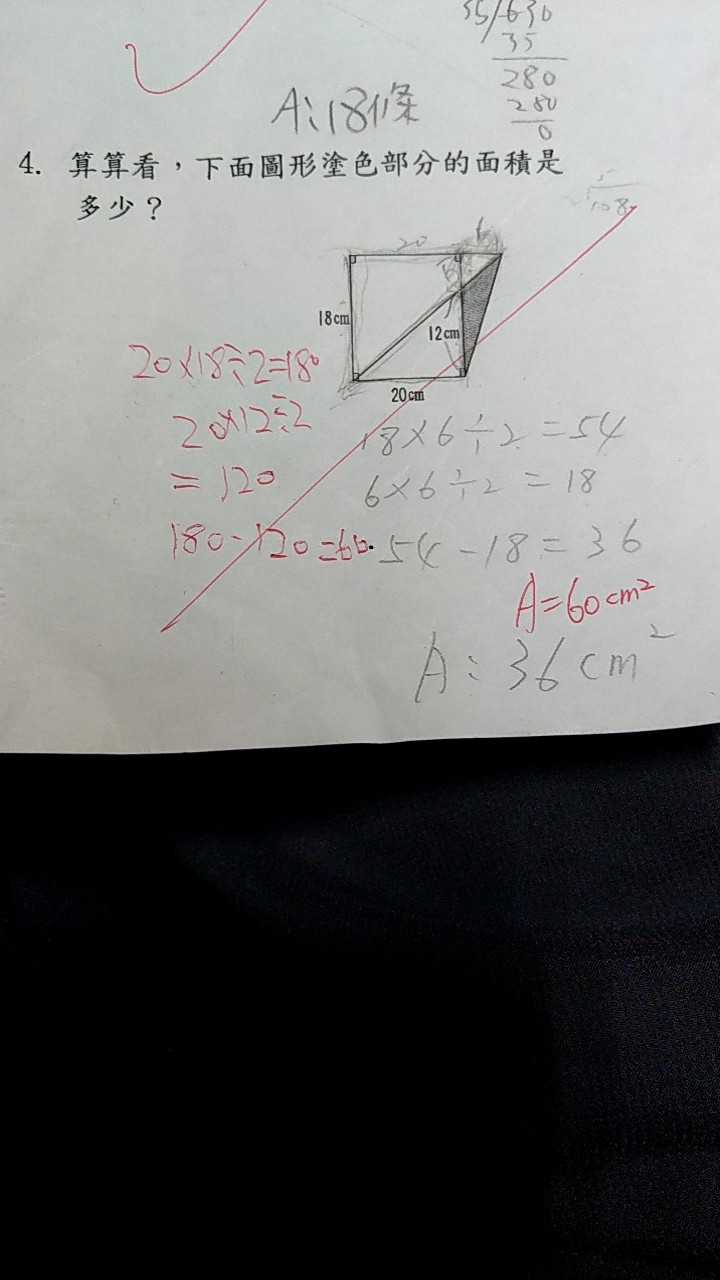 35/630
35
280
280
0
A:18條
4. 算算看，下面圖形塗色部分的面積是
多少？
108
20
6
18cm
12cm
20cm
20×18÷2=180
20×12÷2
=120
180-120=60
18×6÷2=54
6×6÷2=18
54-18=36
A=60cm²
A:36cm²